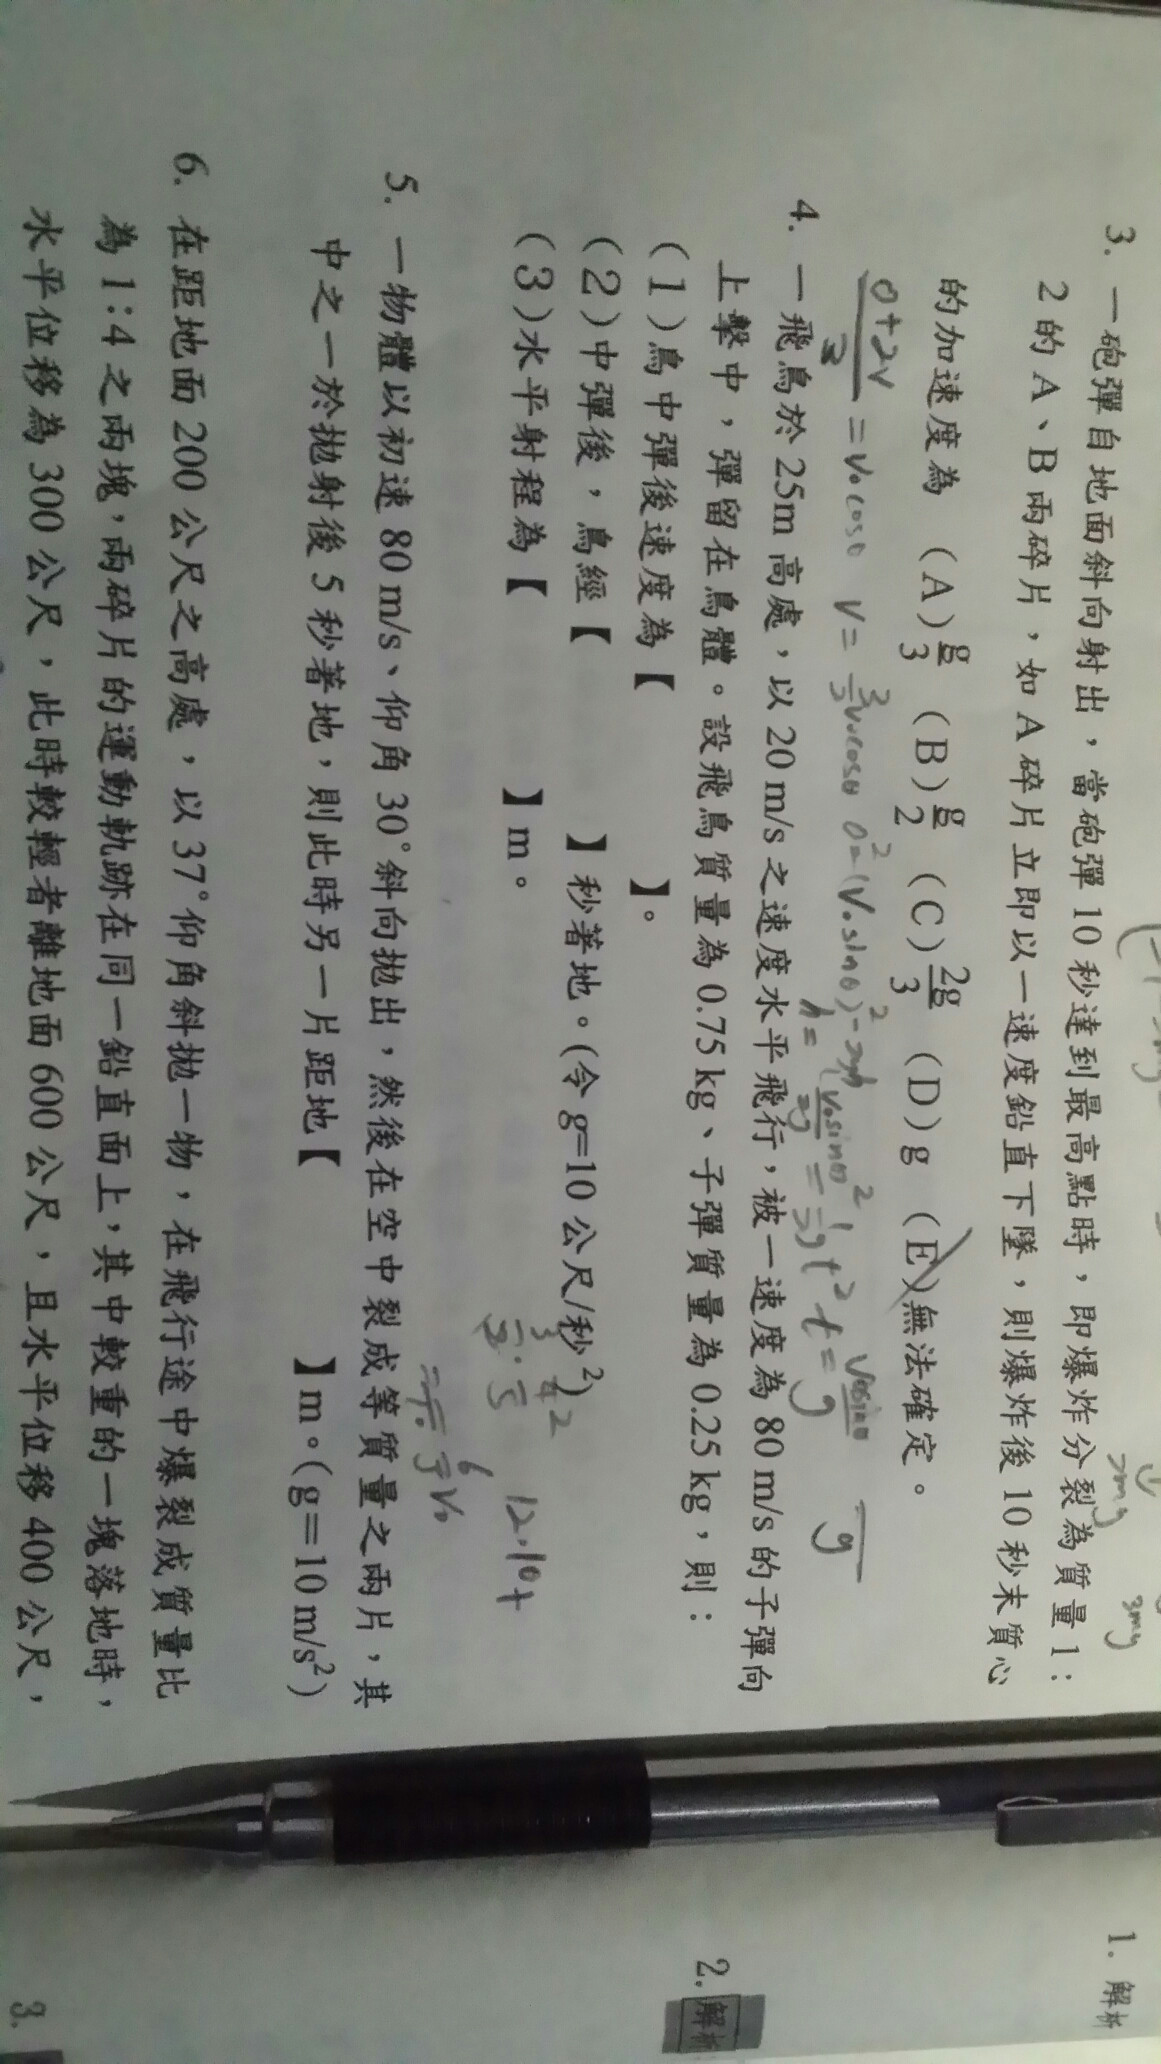 3. 一砲彈自地面斜向射出，當砲彈 10 秒達到最高點時，即爆炸分裂為質量 1：
2 的 A、B 兩碎片，如 A 碎片立即以一速度鉛直下墜，則爆炸後 10 秒末質心
的加速度為 (A) g/3 (B) g/2 (C) 2g/3 (D) g (E) 無法確定。
4. 一飛鳥於 25m 高處，以 20 m/s 之速度水平飛行，被一速度為 80 m/s 的子彈向
上擊中，彈留在鳥體。設飛鳥質量為 0.75 kg、子彈質量為 0.25 kg，則：
(1)鳥中彈後速度為【 】。
(2)中彈後，鳥經【 】秒著地。(令 g=10 公尺/秒²)
(3)水平射程為【 】m。
5. 一物體以初速 80 m/s、仰角 30°斜向拋出，然後在空中裂成等質量之兩片，其
中之一於拋射後 5 秒著地，則此時另一片距地【 】m。(g=10 m/s²)
6. 在距地面 200 公尺之高處，以 37°仰角斜拋一物，在飛行途中爆裂成質量比
為 1:4 之兩塊，兩碎片的運動軌跡在同一鉛直面上，其中較重的一塊落地時，
水平位移為 300 公尺，此時較輕者離地面 600 公尺，且水平位移 400 公尺，
1. 解析
2. 解析
3.
2mg
3mg
0+2V/3 = V₀cosθ V = 3/2 V₀cosθ
12.10+